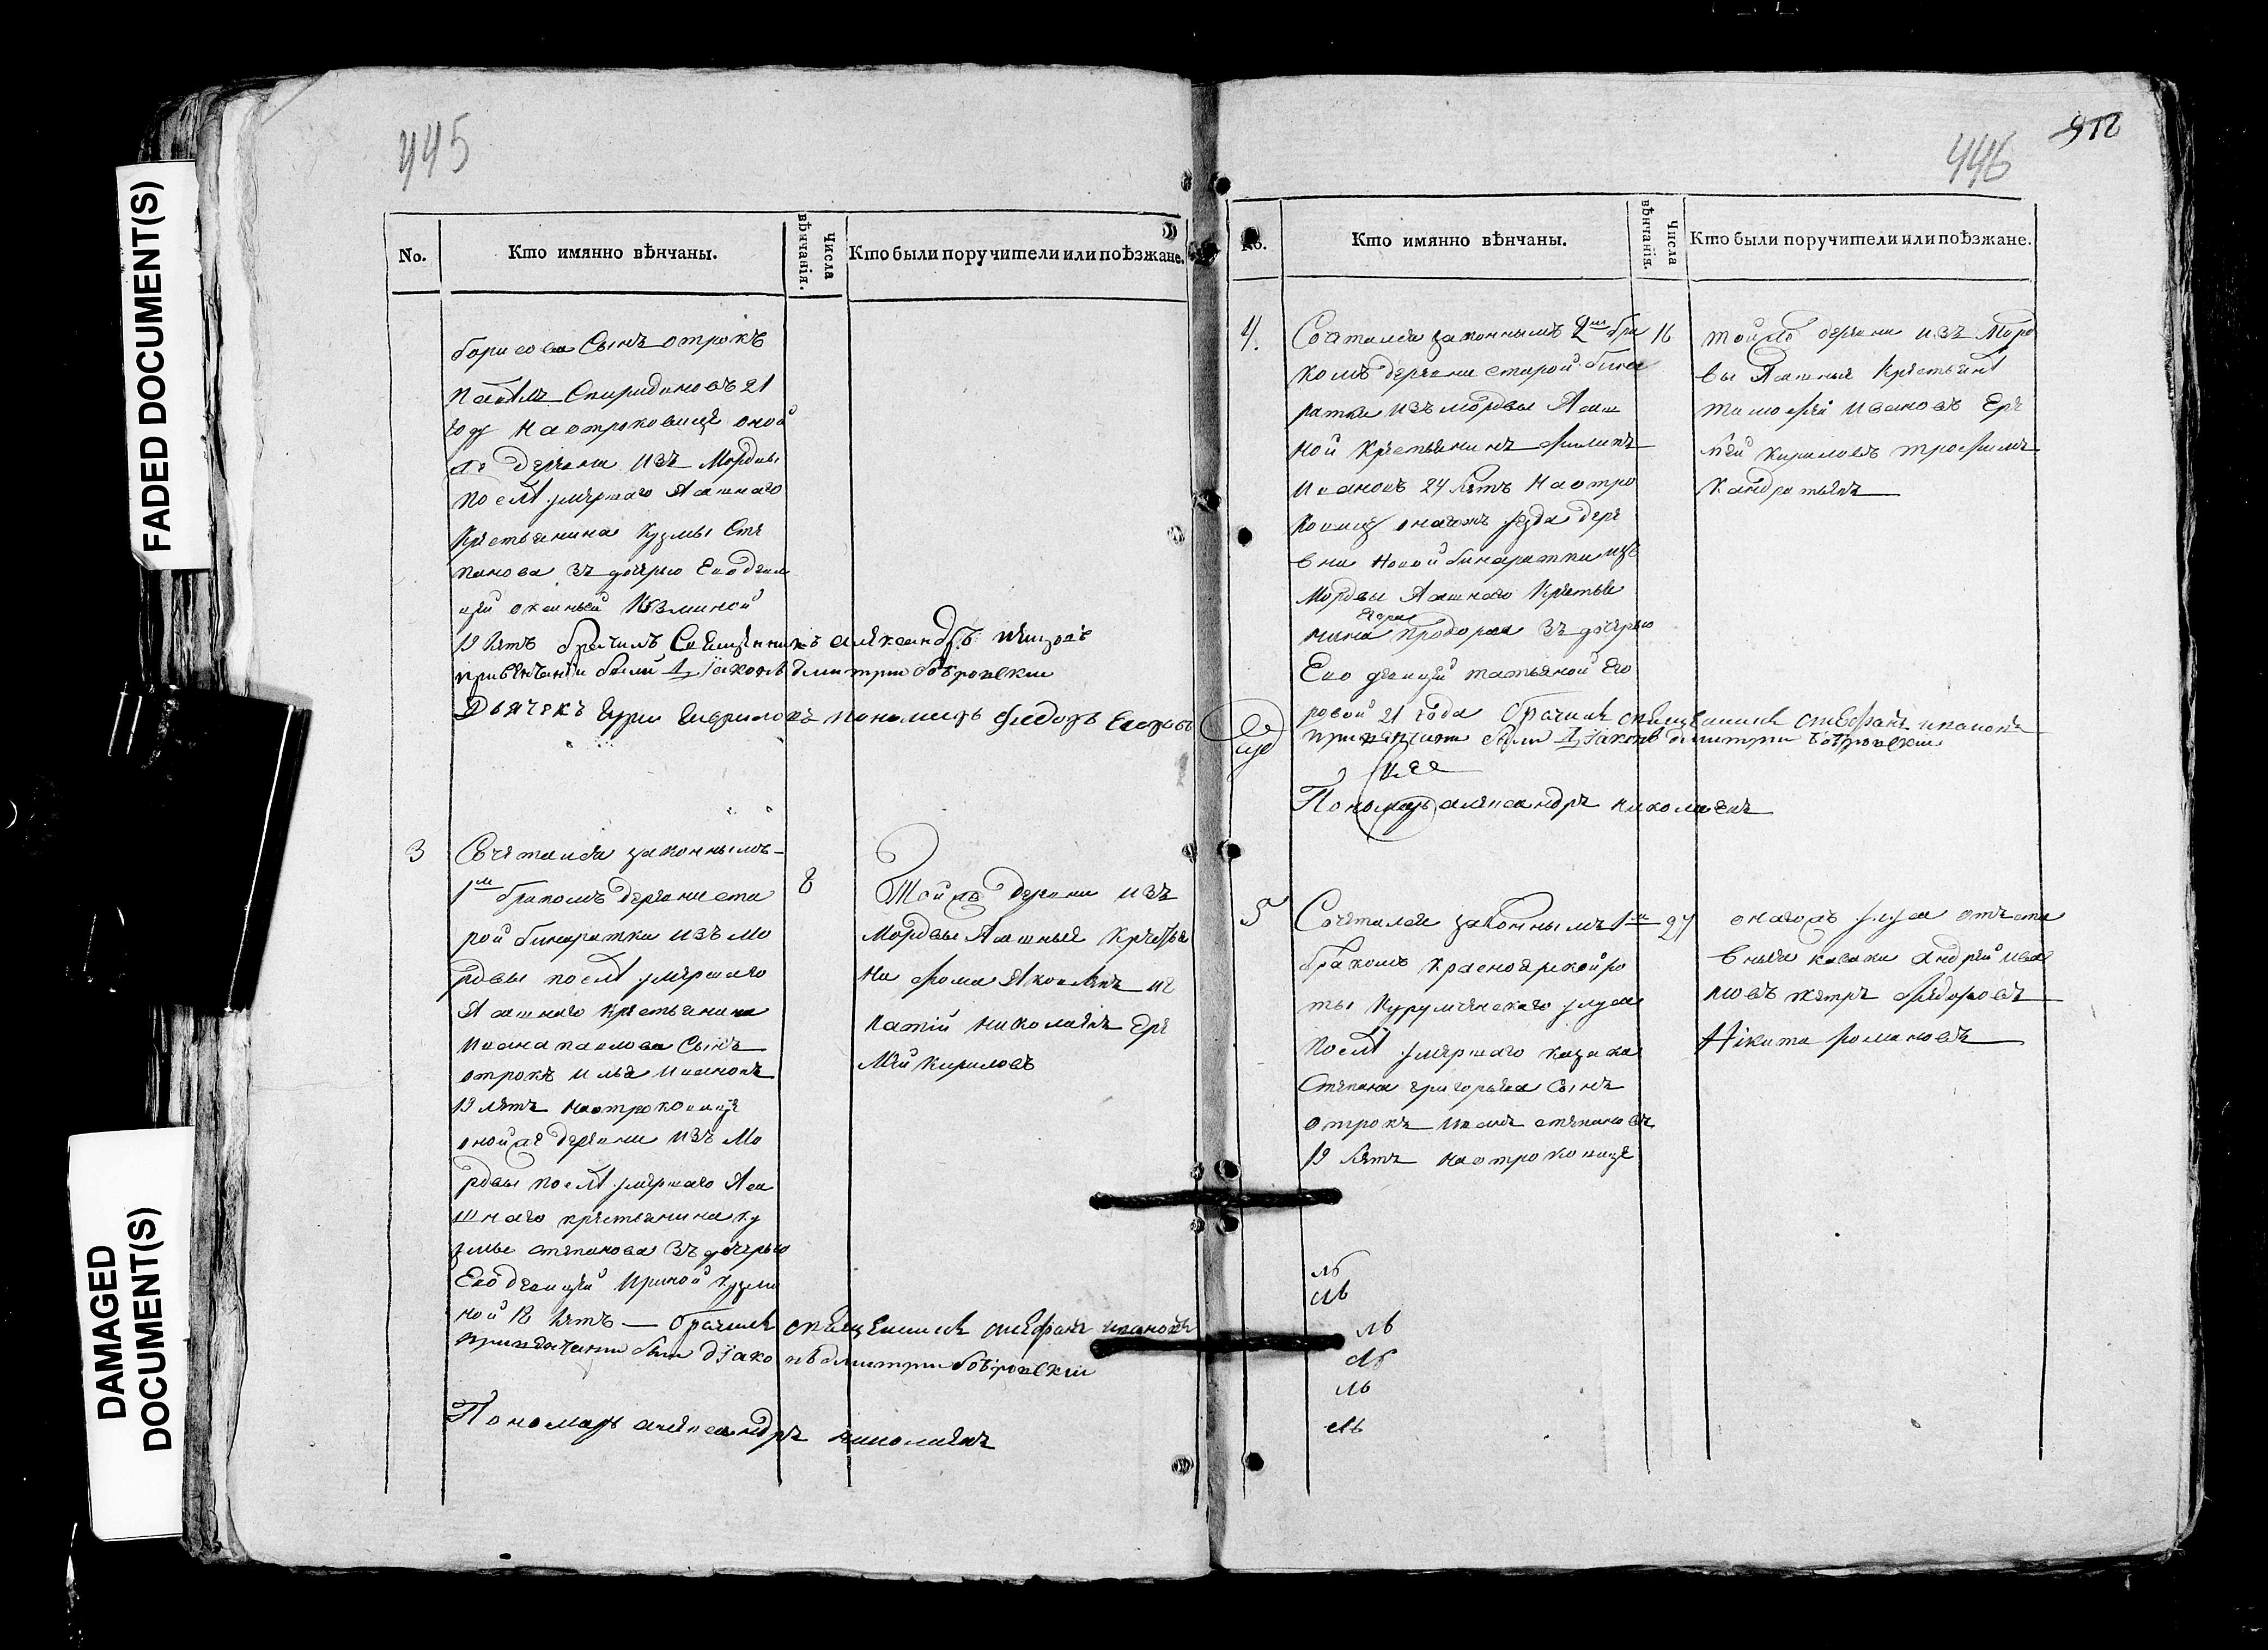 FADED DOCUMENT(S)
DAMAGED
DOCUMENT(S)
445
No.
Кто имянно вѣнчаны.
Числа
вѣнчанія.
Кто были поручители или поѣзжане.
борисова Сынъ отрокъ
Спиридоновъ 21
году На отроковице оной
же деревни изъ Мордвы
после умершаго Ясашнаго
Крестьянина Кузмы Сте
панова зъ дочерью Ево деви
цей Кузминой
19 летъ брачилъ Священникъ александръ
при венчании были Діаконъ димитри бобровски
Дьячекъ гавриловъ пономарь федоръ
3
Сочетался законнымъ
1м бракомъ деревни ста
рой бинаратки изъ мо
рдвы после умершаго
Ясашнаго крестьянина
Ивана павлова Сынъ
отрокъ илья ивановъ
19 летъ на отроковице
оной же деревни изъ мо
рдвы после умершаго Яса
шнаго крестьянина ку
змы степанова зъ дочерью
Ево девицей Ириной кузми
ной 18 летъ — брачилъ священникъ стефанъ ивановъ
при венчании были діаконъ димитри бобровскии
Пономарь александръ николаевъ
8
Той же деревни изъ
мордвы Ясашныя крестья
не фома Яковлевъ иг
натий николаевъ Ере
мей кириловъ
446
No.
Кто имянно вѣнчаны.
Числа
вѣнчанія.
Кто были поручители или поѣзжане.
4.
Сочетался законнымъ 2м бра
комъ деревни старой бина
ратки изъ мордвы Ясаш
ной крестьянинъ филипъ
Ивановъ 24 летъ На отро
ковице онагожъ уезда дере
вни новой бинаратки изъ
мордвы Ясашнаго Крестья
Егора
нина зъ дочерью
Ево девицей татьяной Его
ровой 21 года брачилъ священникъ стефанъ ивановъ
при венчании были Діаконъ димитри бобровскии
Пономарь александръ николаевъ
16
той же деревни изъ Морд
вы Ясашныя Крестьяне
тимофей ивановъ Ере
мей кириловъ трофимъ
кандратьевъ
5
Сочетался законнымъ 1м
бракомъ красноярской ро
ты уезда
после умершаго казака
Степана григорьева Сынъ
отрокъ иванъ степановъ
19 летъ на отроковице
27
онагожъ уезда отста
вныя казаки андрей ива
новъ петръ федоровъ
Никита романовъ